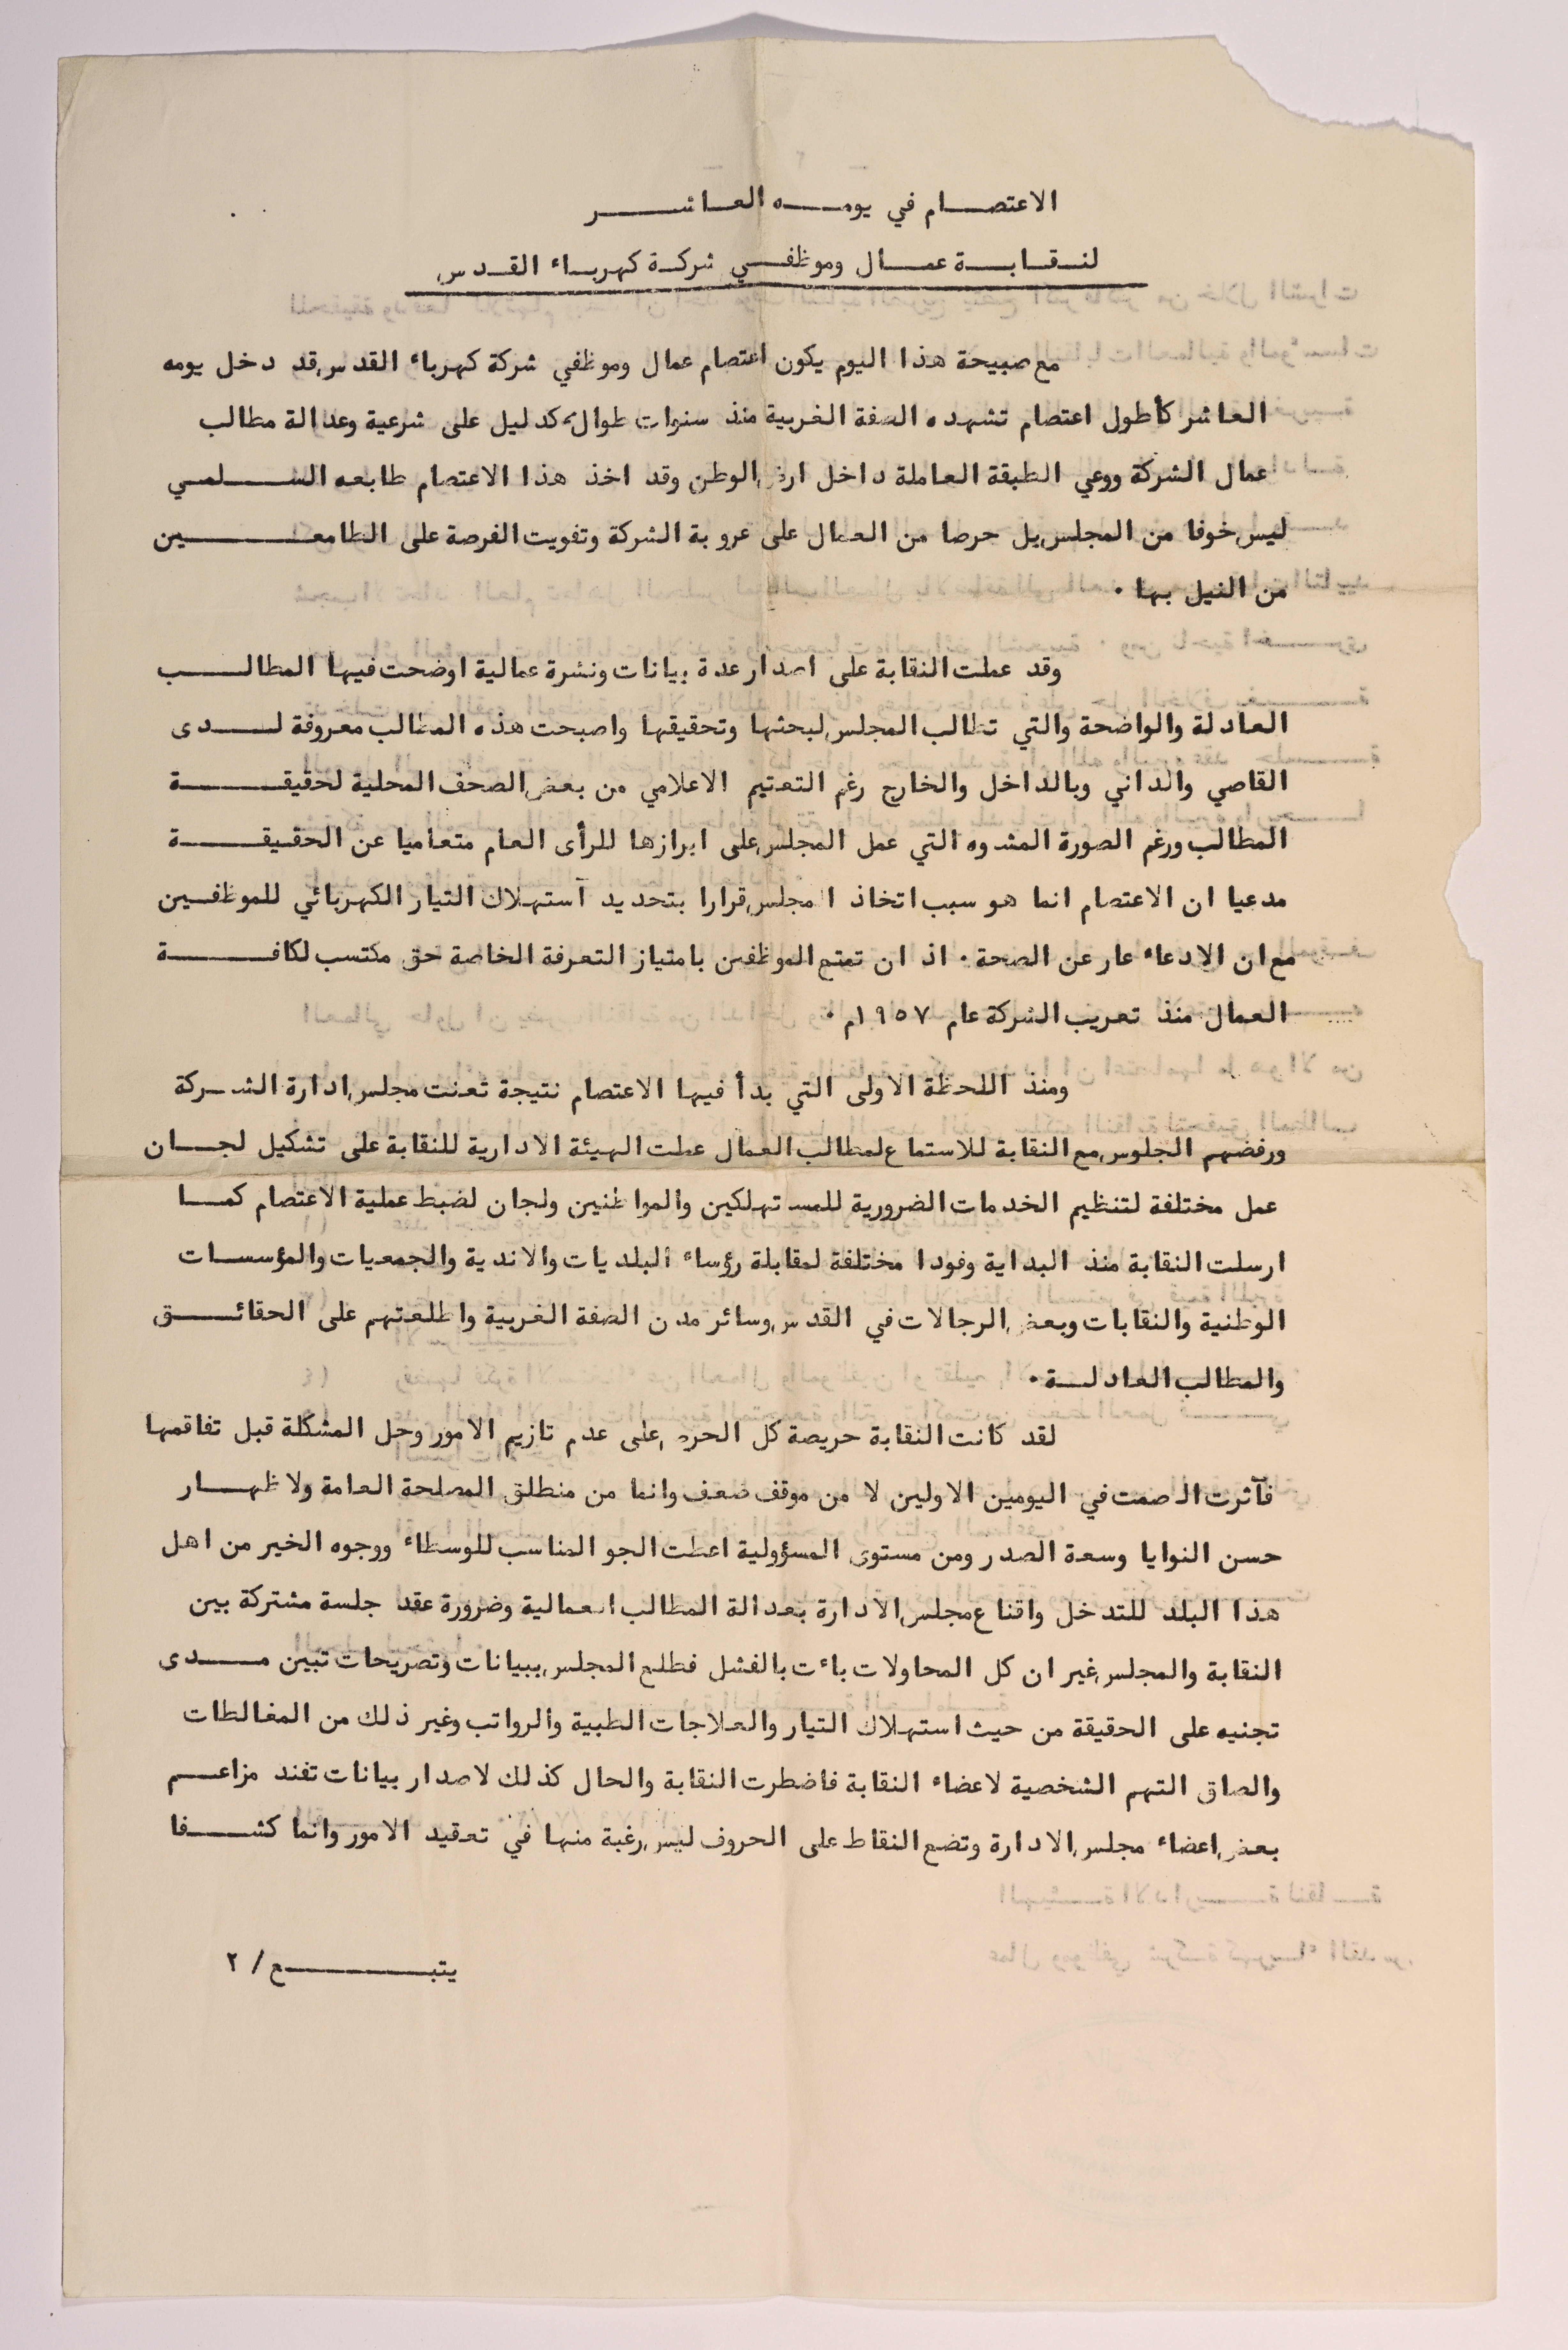 الاعتصام في يومه العاشر
لنقابة عمال وموظفي شركة كهرباء القدس
مع صبيحة هذا اليوم يكون اعتصام عمال وموظفي شركة كهرباء القدس قد دخل يومه
العاشر كأطول اعتصام تشهده الضفة الغربية منذ سنوات طوال، كدليل على شرعية وعدالة مطالب
عمال الشركة ووعي الطبقة العاملة داخل ارض الوطن وقد اخذ هذا الاعتصام طابعه السلمي
ليس خوفا من المجلس بل حرصا من العمال على عروبة الشركة وتفويت الفرصة على الطامعين
من النيل بها .
وقد عملت النقابة على اصدار عدة بيانات ونشرة عمالية اوضحت فيها المطالب
العادلة والواضحة والتي تطالب المجلس لبحثها وتحقيقها واصبحت هذه المطالب معروفة لدى
القاصي والداني وبالداخل والخارج رغم التعتيم الاعلامي من بعض الصحف المحلية لحقيقة
المطالب ورغم الصورة المشدوه التي عمل المجلس على ابرازها للرأى العام متعاميا عن الحقيقة
مدعيا ان الاعتصام انما هو سبب اتخاذ المجلس قرارا بتحديد آستهلاك التيار الكهربائي للموظفين
مع ان الادعاء عار عن الصحة . اذ ان تمتع الموظفين بامتياز التعرفة الخاصة حق مكتسب لكافة
العمال منذ تعريب الشركة عام ١٩٥٧م .
ومنذ اللحظة الاولى التي بدأ فيها الاعتصام نتيجة تعنت مجلس ادارة الشركة
ورفضهم الجلوس مع النقابة للاستماع لمطالب العمال عملت الهيئة الادارية للنقابة على تشكيل لجان
عمل مختلفة لتنظيم الخدمات الضرورية للمستهلكين والمواطنين ولجان لضبط عملية الاعتصام كما
ارسلت النقابة منذ البداية وفودا مختلفة لمقابلة رؤساء البلديات والاندية والجمعيات والمؤسسات
الوطنية والنقابات وبعض الرجالات في القدس وسائر مدن الضفة الغربية واطلعتهم على الحقائق
والمطالب العادلة .
لقد كانت النقابة حريصة كل الحرص على عدم تازيم الامور وحل المشكلة قبل تفاقمها
فآثرت الصمت في اليومين الاولين لا من موقف ضعف وانما من منطلق المصلحة العامة ولاظهار
حسن النوايا وسعة الصدر ومن مستوى المسؤولية اعطت الجو المناسب للوسطاء ووجوه الخير من اهل
هذا البلد للتدخل واقناع مجلس الادارة بعدالة المطالب العمالية وضرورة عقد جلسة مشتركة بين
النقابة والمجلس غير ان كل المحاولات باءت بالفشل فطلع المجلس ببيانات وتصريحات تبين مدى
تجنيه على الحقيقة من حيث استهلاك التيار والعلاجات الطبية والرواتب وغير ذلك من المغالطات
والصاق التهم الشخصية لاعضاء النقابة فاضطرت النقابة والحال كذلك لاصدار بيانات تفند مزاعم
بعض اعضاء مجلس الادارة وتضع النقاط على الحروف ليس رغبة منها في تعقيد الامور وانما كشفا
يتبع / ٢